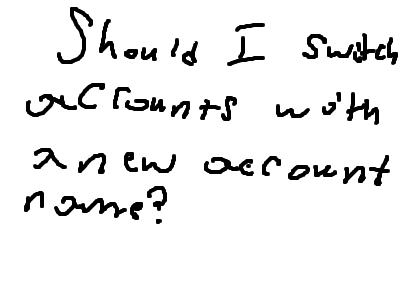 Should I switch
accounts with
a new account
name?